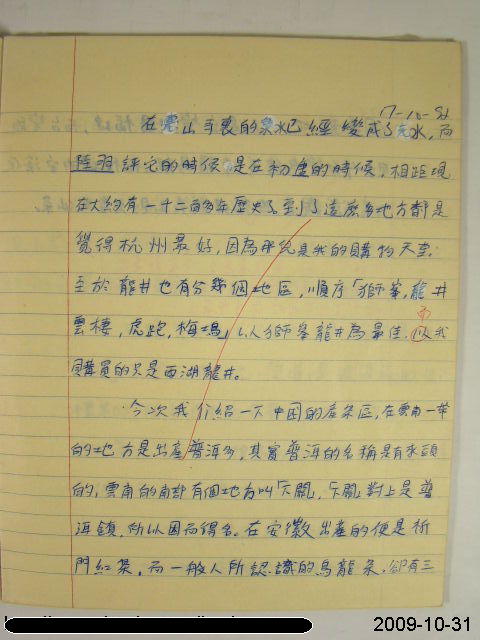 17-10-82
在憲山寺裏的泉水已經變成了死水,而
陸羽評它的時候是在初唐的時候,相距現
在大約有一千二百多年歷史了。到了這麼多地方都是
覺得杭州最好,因為那兒是我的購物天堂。
至於龍井也有分幾個地區,順序「獅峯,龍井
雲棲,虎跑,梅塢」以獅峯龍井為最佳,而我
購買的只是西湖龍井。
今次我介紹一下中国的產茶區,在雲南一帶
的地方是出產普洱多,其實普洱的名稱是有來頭
的,雲南的南部有個地方叫「下關」,下關對上是普
洱鎮,所以因而得名。在安徽出產的便是祈
門紅茶,而一般人所認識的烏龍茶,卻有三
2009-10-31